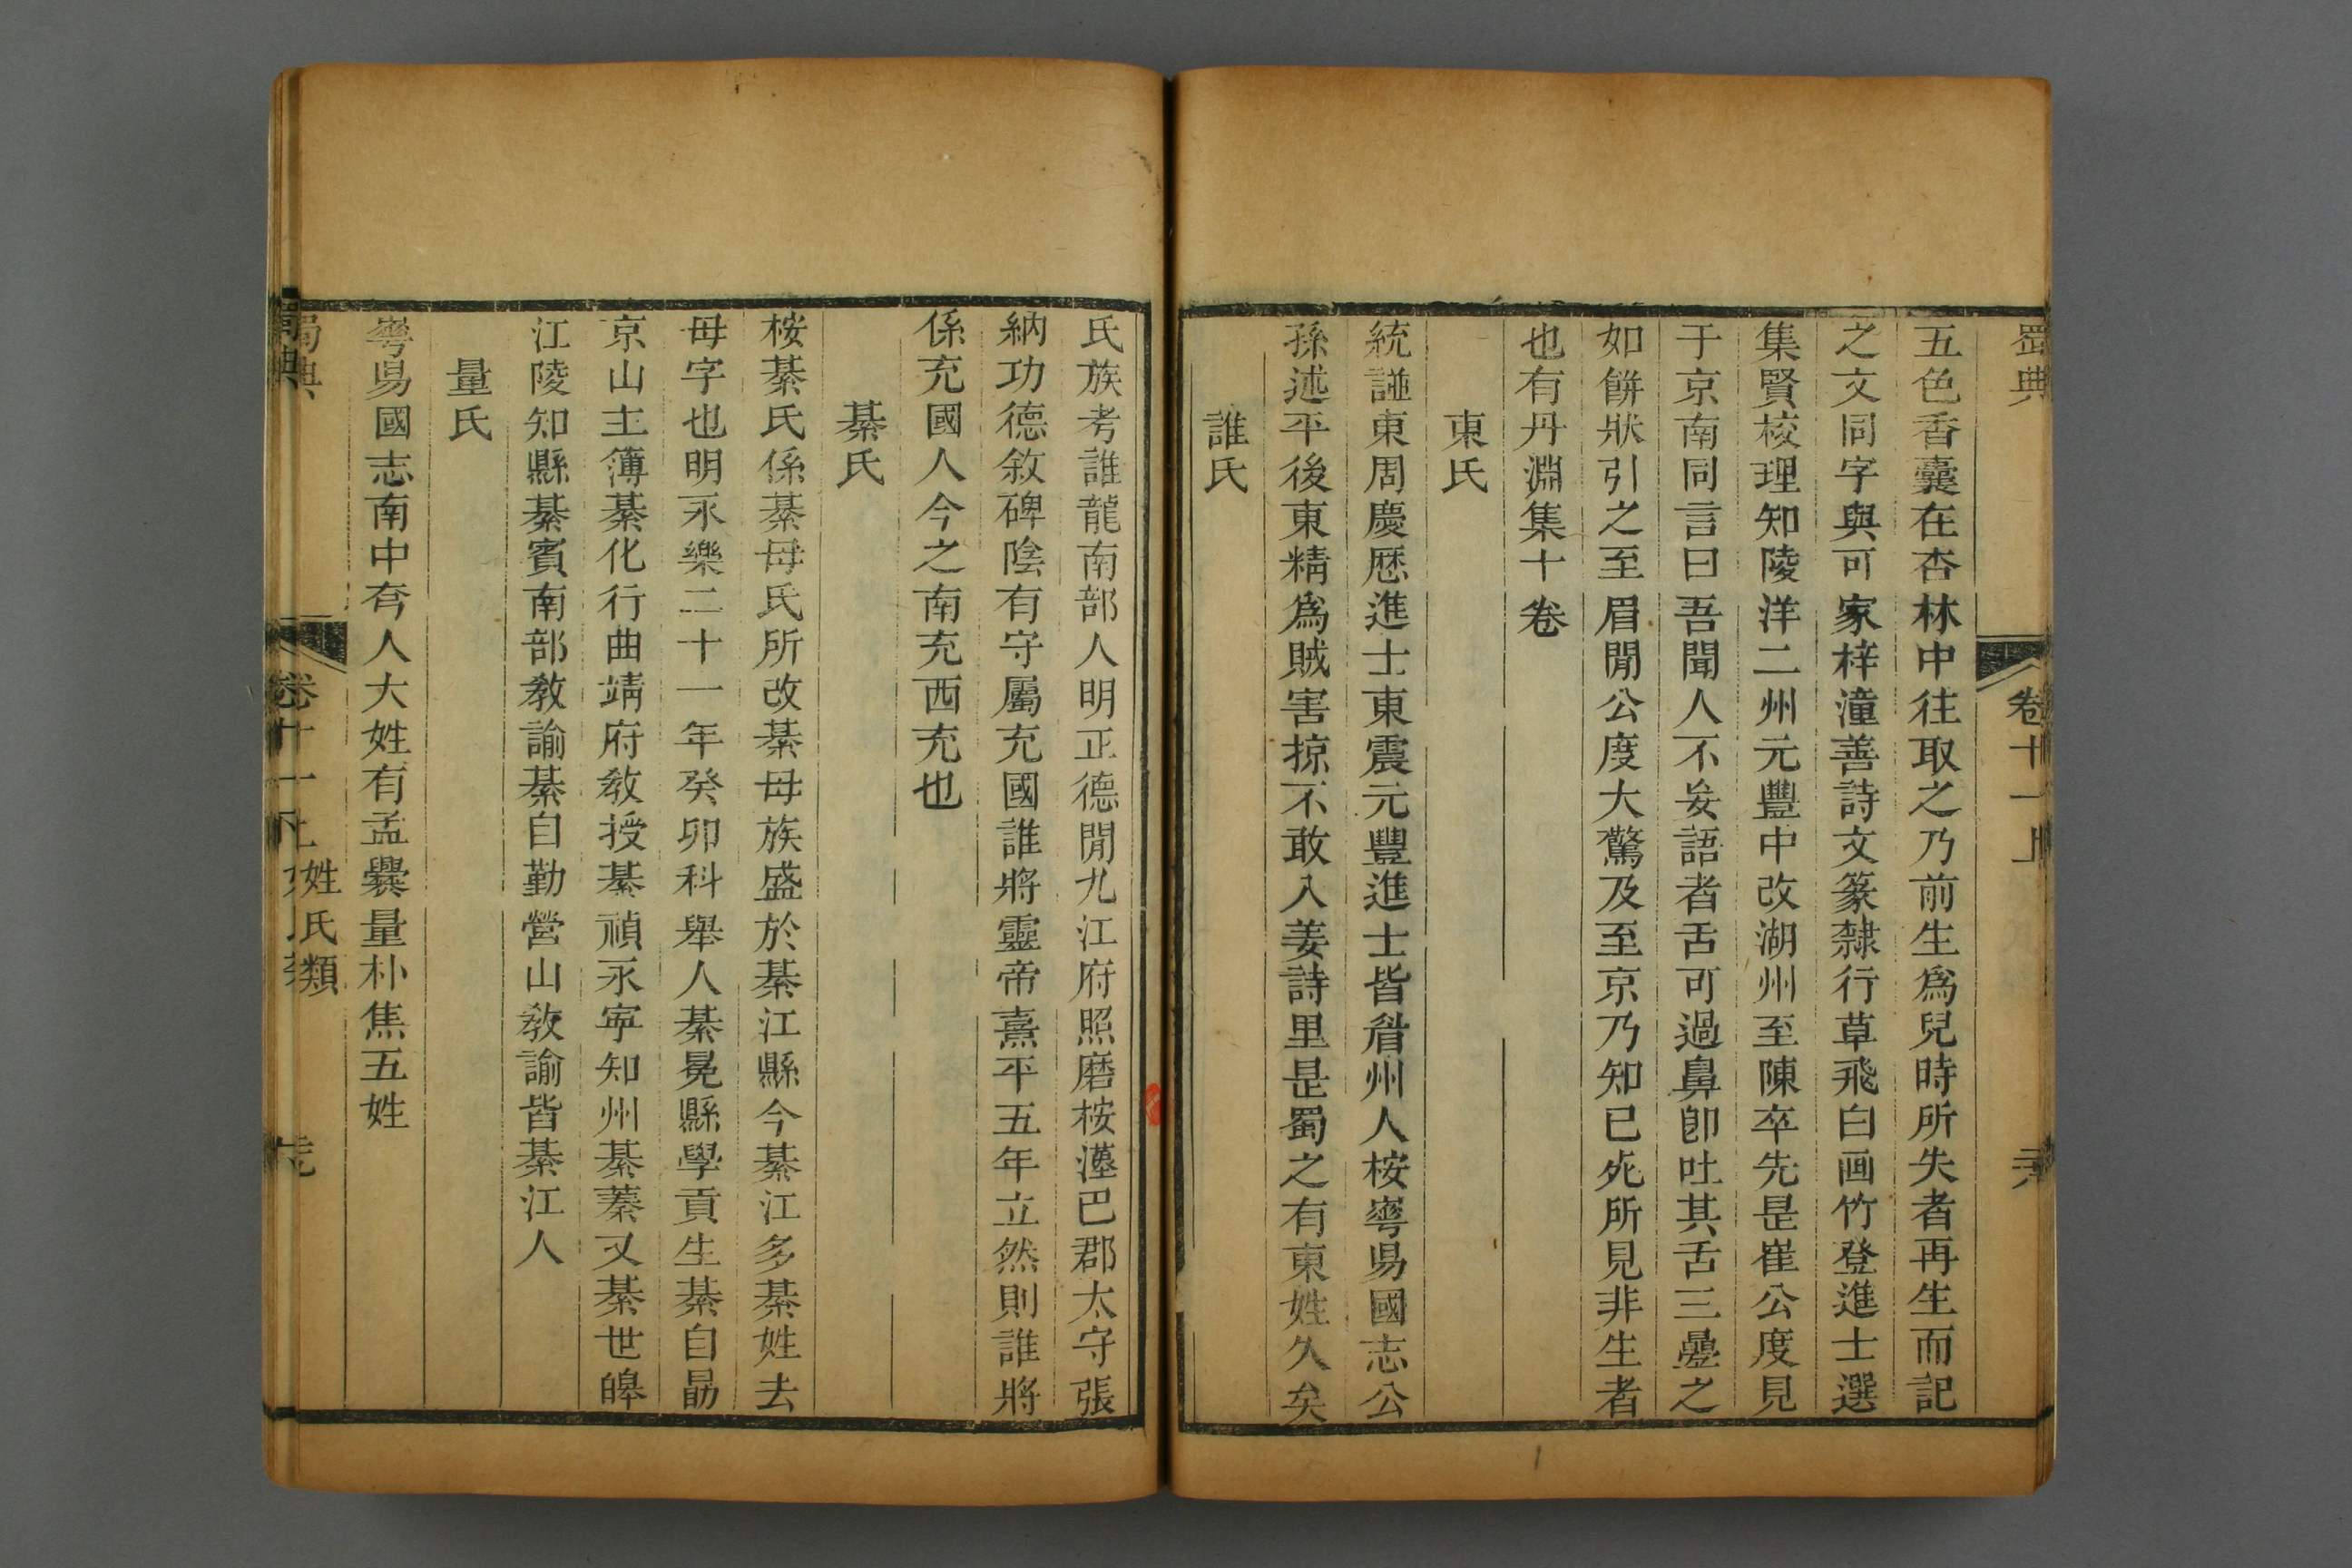 蜀典 卷十一上
五色香囊在杏林中往取之乃前生爲兒時所失者再生而記
之文同字與可家梓潼善詩文篆隸行草飛白画竹登進士選
集賢校理知陵洋二州元豐中改湖州至陳卒先是崔公度見
于京南同言曰吾聞人不妄語者舌可過鼻卽吐其舌三疊之
如餅狀引之至眉閒公度大驚及至京乃知已死所見非生者
也有丹淵集十卷
東氏
統譜東周慶歷進士東震元豐進士皆眉州人桉華陽國志公
孫述平後東精爲賊害掠不敢入姜詩里是蜀之有東姓久矣
誰氏
氏族考誰龍南部人明正德閒九江府照磨桉漢巴郡太守張
納功德敘碑陰有守屬充國誰將靈帝熹平五年立然則誰將
係充國人今之南充西充也
綦氏
桉綦氏係綦母氏所改綦母族盛於綦江縣今綦江多綦姓去
母字也明永樂二十一年癸卯科舉人綦晃縣學貢生綦自勗
京山主簿綦化行曲靖府敎授綦禎永寧知州綦蓁又綦世皞
江陵知縣綦賓南部敎諭綦自勤營山敎諭皆綦江人
量氏
華陽國志南中有人大姓有孟爨量朴焦五姓
蜀典 卷十一上 姓氏類